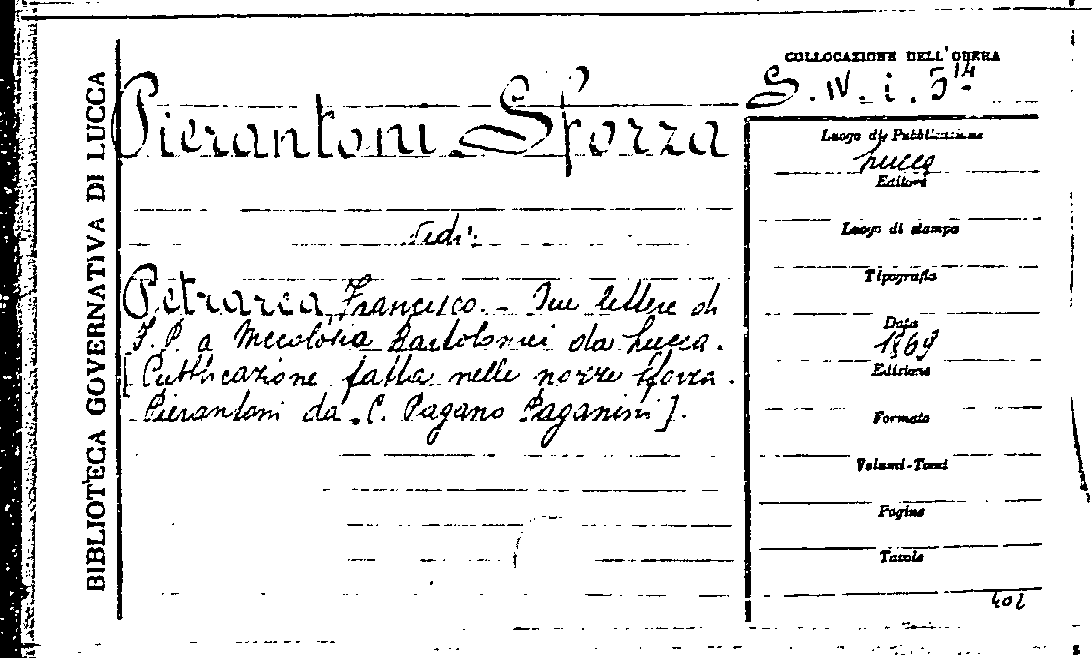 BIBLIOTECA GOVERNATIVA DI LUCCA
COLLOCAZIONE DELL'OPERA
S. IV. i. 5 14
Pierantoni Sforza
vedi:
Petrarca, Francesco. - Due lettere di
F. P. a Mecolosia Bartolomei da Lucca.
[Pubblicazione fatta nelle nozze Sforza.
Pierantoni da C. Pagano Paganini].
Luogo di Pubblicazione
Lucca
Editore
Luogo di stampa
Tipografia
Data
1869
Edizione
Formato
Volumi-Tomi
Pagine
Tavole
402